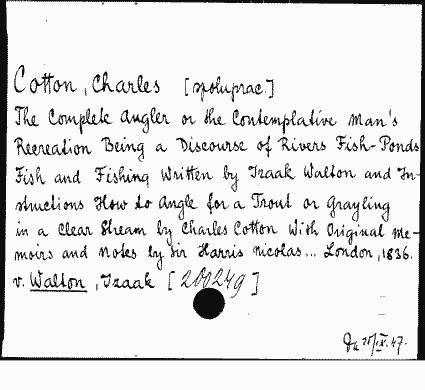 Cotton, Charles [spoluprac.]
The Complete Angler or the Contemplative Man's
Recreation Being a Discourse of Rivers Fish-Ponds
Fish and Fishing Written by Izaak Walton and In-
structions How to Angle for a Trout or Grayling
in a Clear Stream by Charles Cotton With Original Me-
moirs and Notes by Sir Harris Nicolas... London, 1836.
v. Walton, Izaak [200249]
IX. 47.